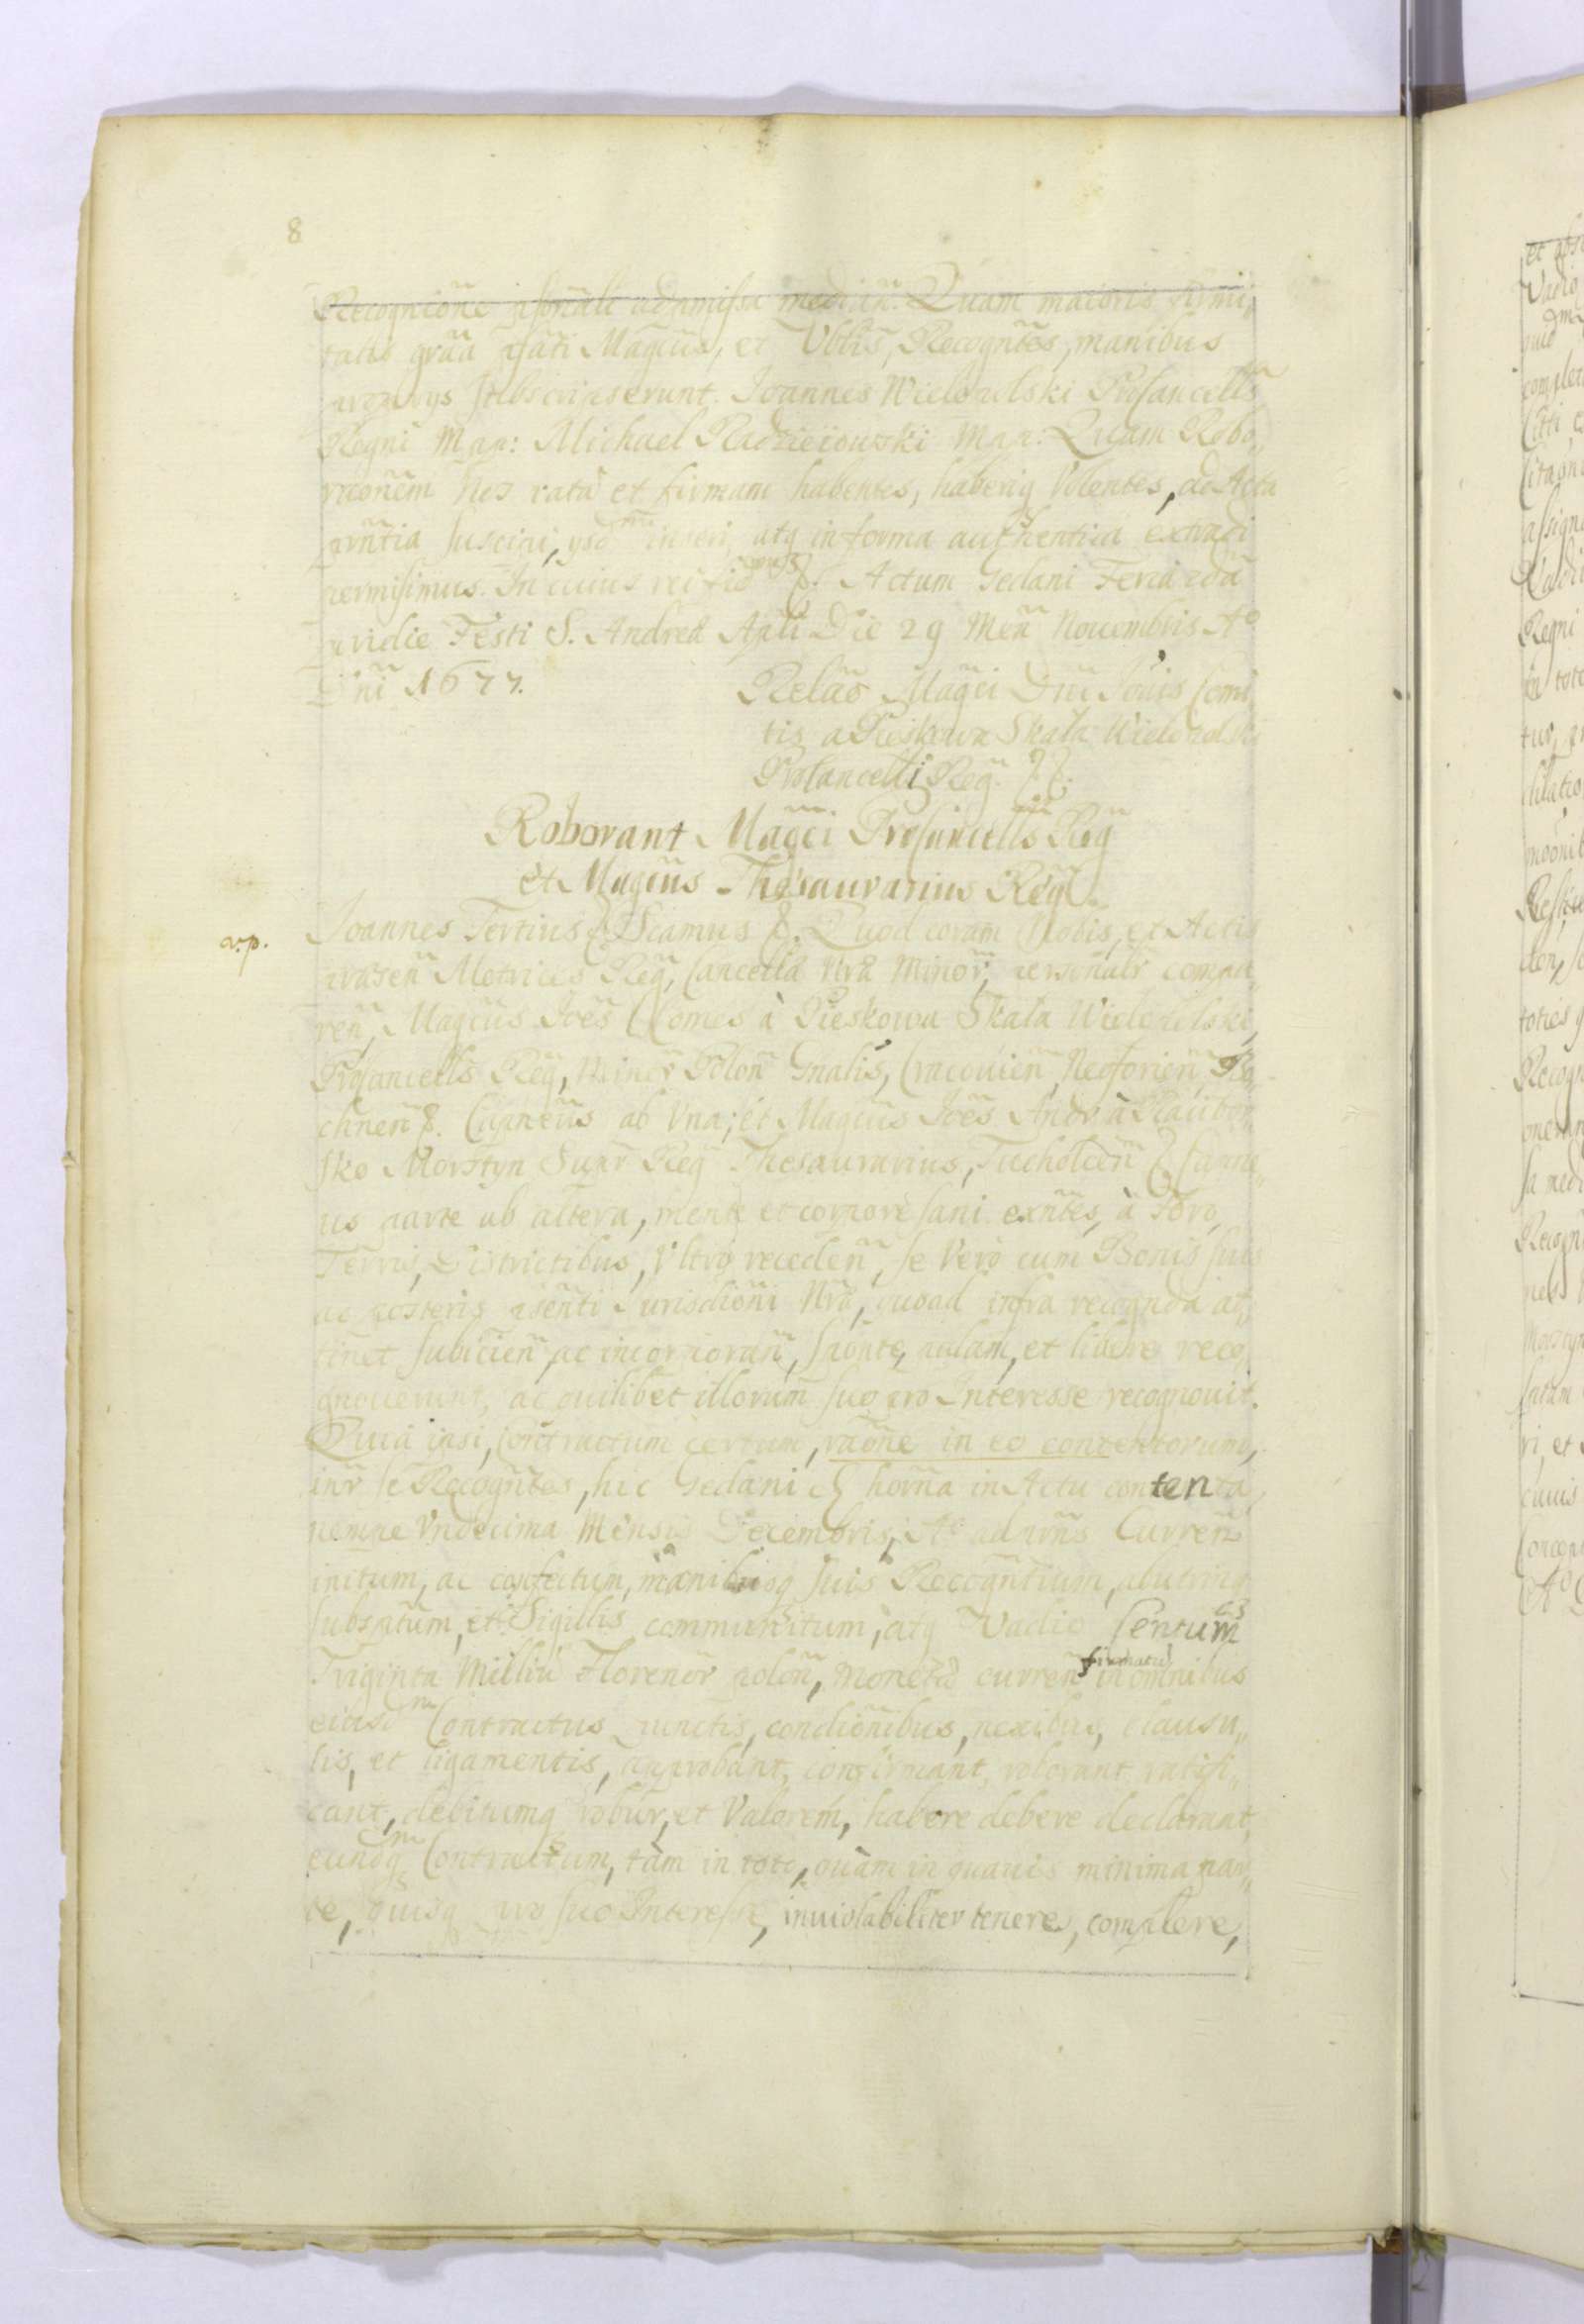 8
Recognicõne psonali admissa median̄. Quam maioris firmi„
tatis grãa pfati Magcus, et Vblis, Recogntes, manibus
proprys subscripserunt. Ioannes Wielopolski Procancells
Regni Mpr: Michael Radzieiowski Mpr. Quam Robo„
raõnem nos ratã et firmam habentes, haberiq volentes, ad Acta
prñtia suscipi, ysdem inseri, atq in forma authentica extradi
permisimus. In cuius rei fid &. Actum Gedani Feria 2da
pridie Festi S. Andreæ Apli Die 29 Men̄ Nouembris Ao
Dni 1677.
Relão Magci Dni Iõis Comi„
tis a Pieskowa Skała Wielopolski
Procancelli Reg̃. &.
Roborant Magci Procancells Reg̃
et Magcus Thesaurarius Reg̃.
v.p.
Ioannes Tertius & Scimus &. Quod coram Nobis, et Actis
præsen̄ Metrices Reg̃, Cancellæ Nræ Minor̃, personalr compa„
ren̄, Magcus Ioẽs Comes à Pieskowa Skała Wielopolski,
Procancells Reg̃, Minor̃ Polon̄ Gnalis, Cracouien̄, Neoforien̄, Bo„
chnen̄ &. Capneus ab Vna; et Magcus Ioẽs Andr̃ à Racibor„
sko Morstyn Supr̃ Reg̃ Thesaurarius, Tucholcen̄ & Capne„
us parte ab altera, mente et corpore sani exñtes, à Foro,
Terris, Districtibus, Vltro receden̄, se Vero cum Bonis suis
ac posteris psenti Iurisdiõni Nræ, quoad infra recognda at„
tinet subicien̄ ac incorporan̄, sponte, palam, et libere reco„
gnouerunt, ac quilibet illorum suo pro Interesse recognouit.
Quia ipsi, Contractum certum, raõne in eo contentorum,
intr̃ se Recogntes, hic Gedani & hor̃na in Actu contenta,
nempe Vndecima Mensis Decembris, Ao ad prñs Curren̄
initum, ac confectum, manibusq suis Recogntium, abutrinq
subsptum, et Sigillis communitum, atq Vadio Centum
Triginta Milliũ Floreñor̃ polon̄, monetæ curren̄ firmatũ in omnibus
eiusdm Contractus punctis, condiõnibus, nexibus, clausu„
lis, et ligamentis, approbant, confirmant, roborant, ratifi„
cant, debitumq robur, et Valorem, habere debere declarant,
eundmq Contractum, tàm in toto, quàm in quauis minima par„
te, quisq pro suo Interesse, inuiolabiliter tenere, complere,